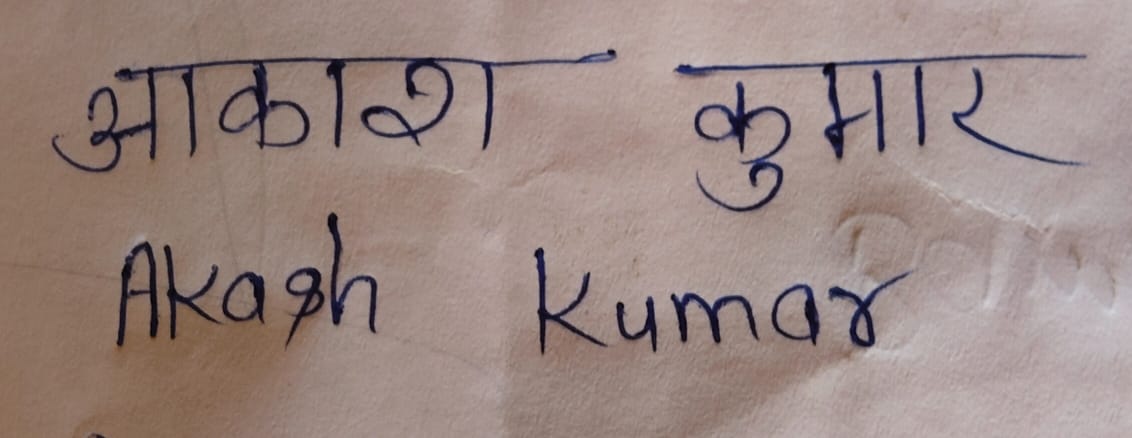 आकाश कुमार
Akash Kumar